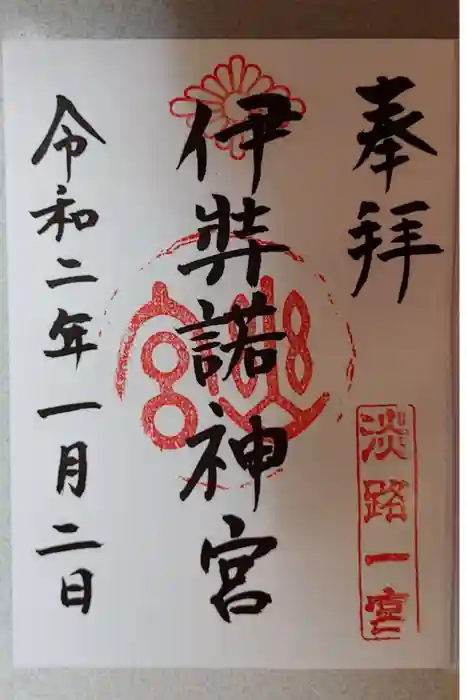 奉拝
淡路一宮
伊弉諾神宮
令和二年一月二日